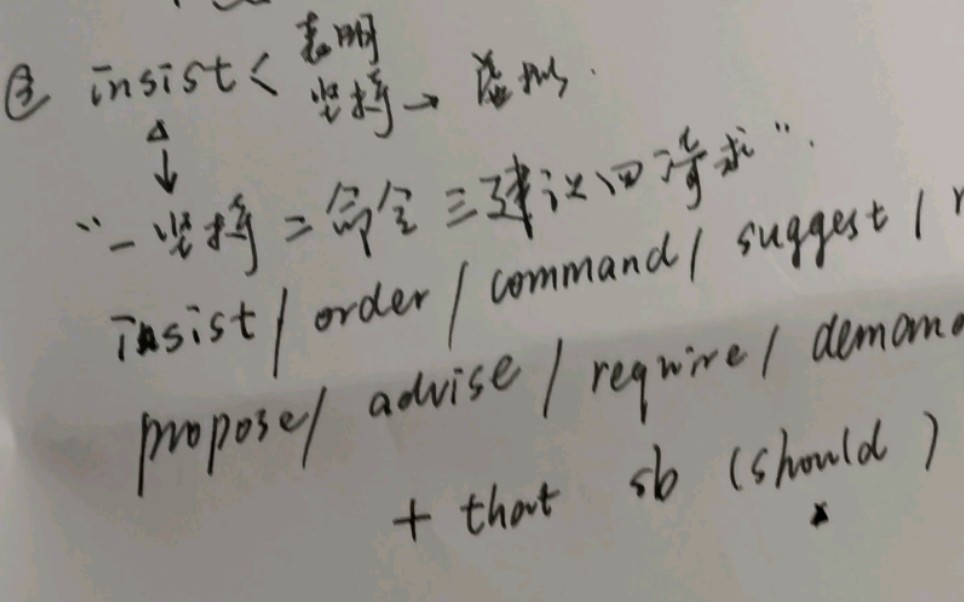 ③ insist < 表明
坚持 → 虚拟.
↓
"一坚持二命令三建议四请求".
insist / order / command / suggest /
propose / advise / require / deman
+ that sb (should)